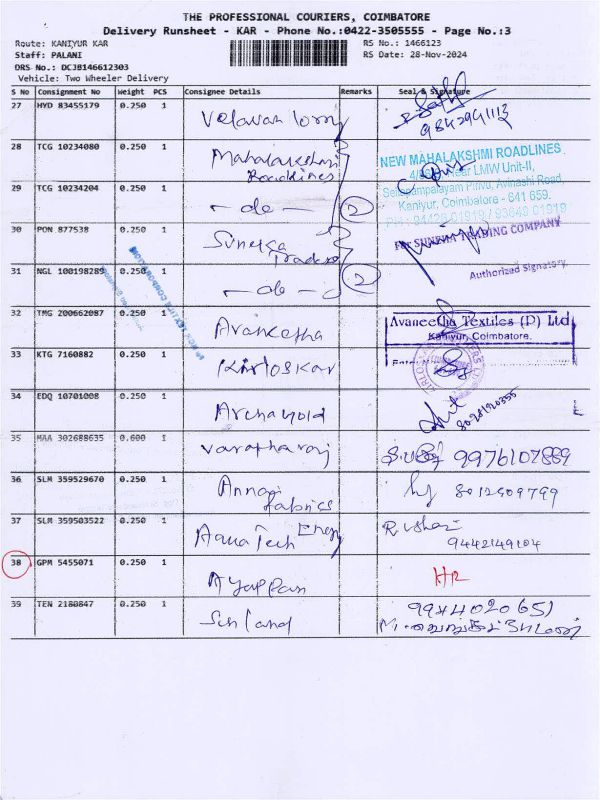 THE PROFESSIONAL COURIERS, COIMBATORE
Delivery Runsheet - KAR - Phone No.:0422-3505555 - Page No.:3
Route: KANIYUR KAR
RS No.: 1466123
Staff: PALANI
RS Date: 28-Nov-2024
DRS No.: DCJB146612303
Vehicle: Two Wheeler Delivery
S No Consignment No Weight PCS Consignee Details Remarks Seal & Signature
27 HYD 83455179 0.250 1 Velavan lorry 9842941113
28 TCG 10234080 0.250 1 Mahalakshmi Roadlines
NEW MAHALAKSHMI ROADLINES
LMW Unit-II,
Avinashi Road,
Kaniyur, Coimbatore - 641 659.
29 TCG 10234204 0.250 1 - do - 2
30 PON 877538 0.250 1 Suneksa Traders
For TRADING COMPANY
Authorized Signatory.
31 NGL 100198289 0.250 1 - do - 2
32 TMG 200662087 0.250 1 Avaneetha
Avaneetha Textiles (P) Ltd
Kaniyur, Coimbatore.
33 KTG 7160882 0.250 1 Kirloskar
34 EDQ 10701008 0.250 1 Archanold
35 MAA 302688635 0.600 1 Varatharaj 9976107889
36 SLM 359529670 0.250 1 Annai Fabrics 8012909799
37 SLM 359503522 0.250 1 Aqua Tech Energy
9442149104
38 GPM 5455071 0.250 1 Ayappan HR
39 TEN 2180847 0.250 1 Sunland 9944020651